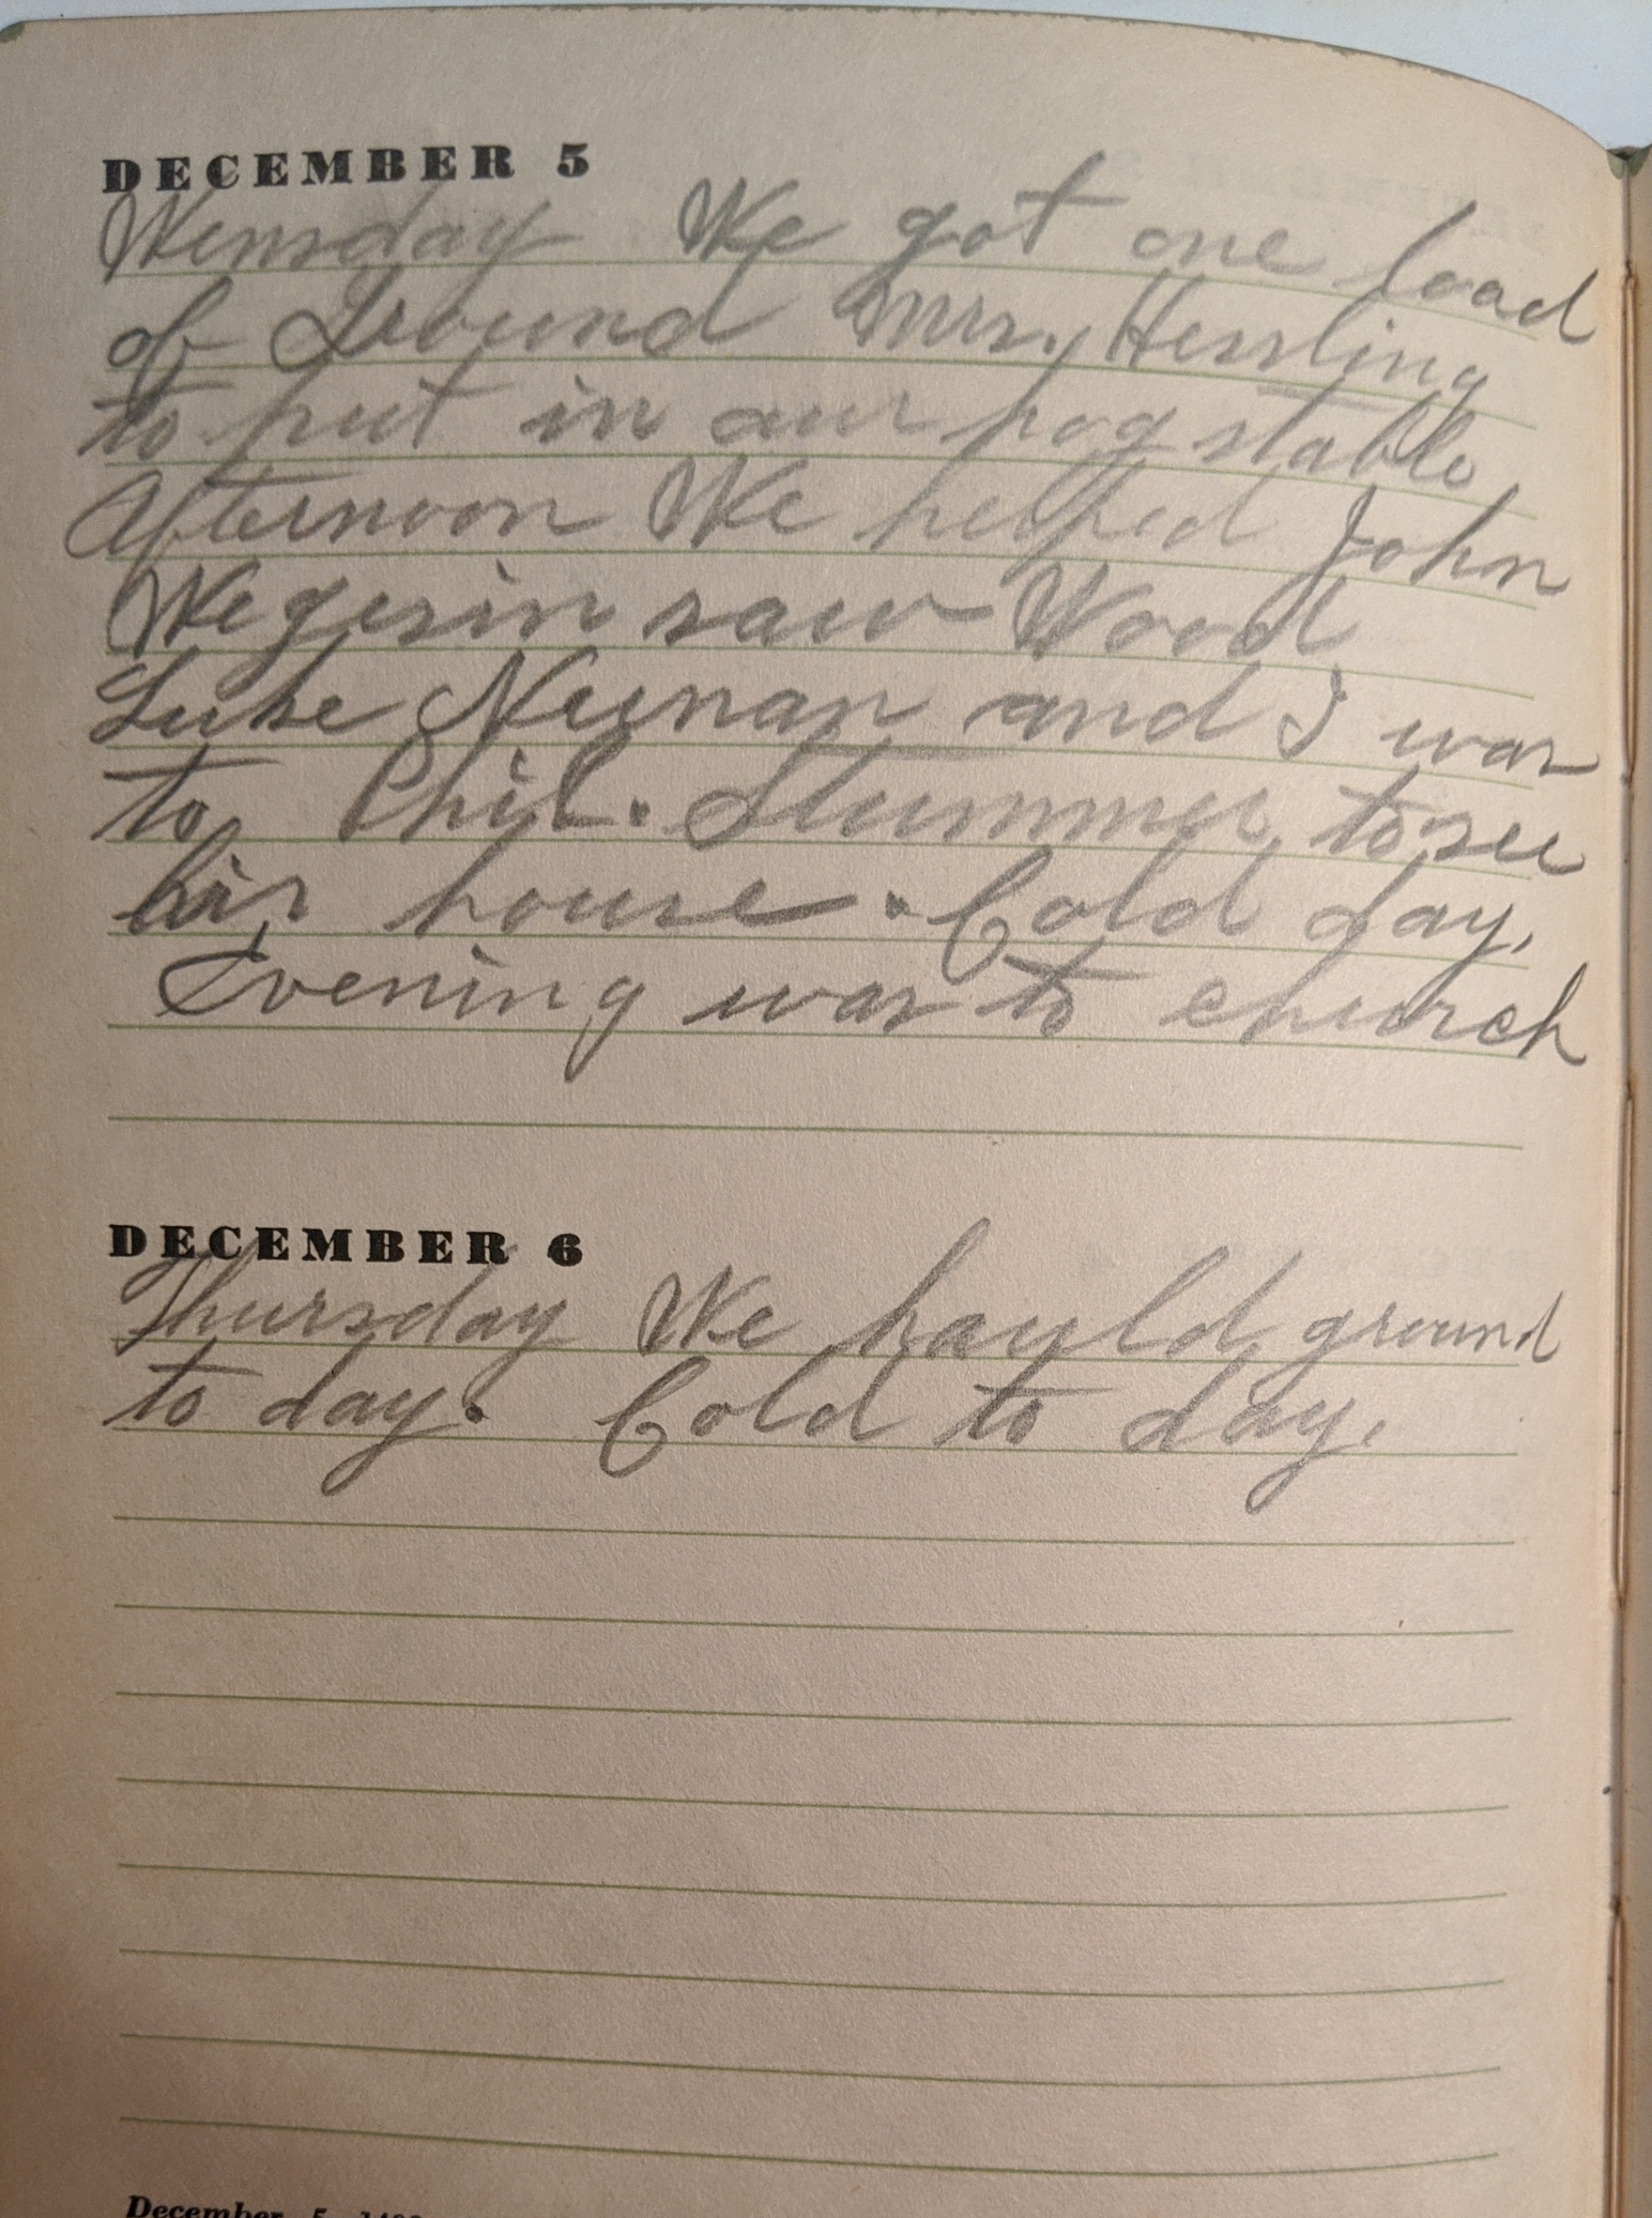 DECEMBER 5
Wensday We got one load
of Ground Mrs. Hessling
to put in our hog stable
Afternoon We helped John
Wegesin saw Wood
Luke Neenan and I was
to Phil. Stummer to see
his house. Cold day.
Evening was to church
DECEMBER 6
Thursday We hauld ground
to day. Cold to day.
December 5, 1492